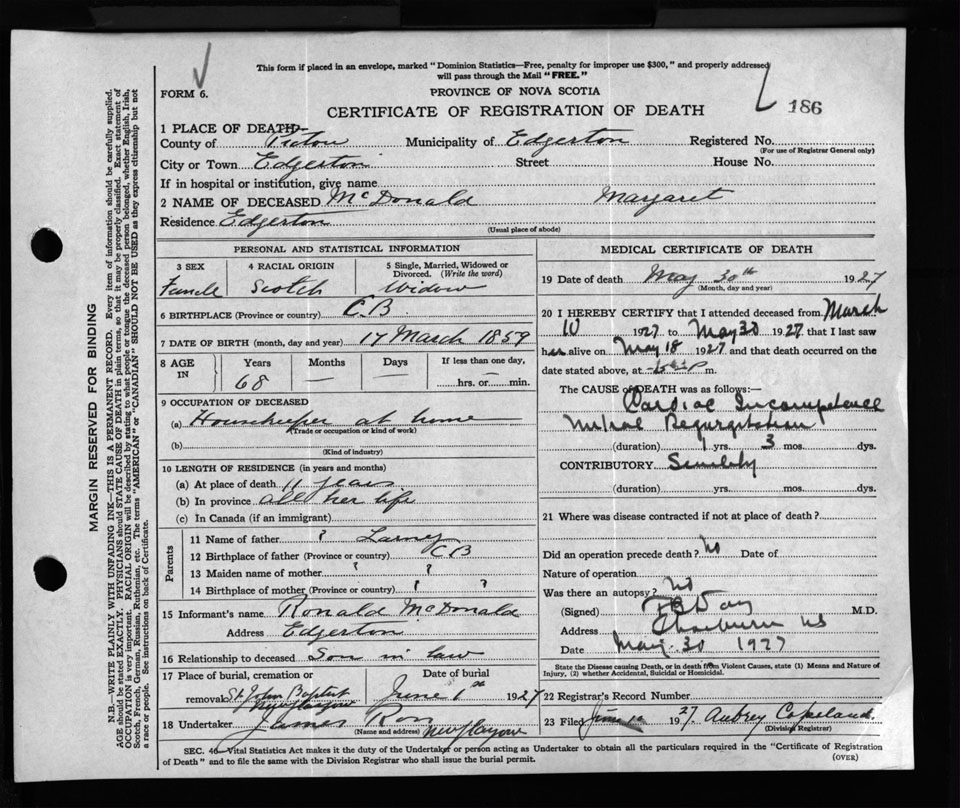 This form if placed in an envelope, marked "Dominion Statistics—Free, penalty for improper use $300," and properly addressed
will pass through the Mail "FREE."
FORM 6.
PROVINCE OF NOVA SCOTIA
CERTIFICATE OF REGISTRATION OF DEATH
186
1 PLACE OF DEATH—
County of Pictou Municipality of Edgerton Registered No.
(For use of Registrar General only)
City or Town Edgerton Street House No.
If in hospital or institution, give name
2 NAME OF DECEASED McDonald Margaret
Residence Edgerton
(Usual place of abode)
PERSONAL AND STATISTICAL INFORMATION
3 SEX 4 RACIAL ORIGIN 5 Single, Married, Widowed or
Divorced. (Write the word)
Female Scotch Widow
6 BIRTHPLACE (Province or country) C.B.
7 DATE OF BIRTH (month, day and year) 17 March 1859
8 AGE IN Years Months Days If less than one day,
68 — — — hrs. or min.
9 OCCUPATION OF DECEASED
(a) Housekeeper at home
(Trade or occupation or kind of work)
(b)
(Kind of industry)
10 LENGTH OF RESIDENCE (in years and months)
(a) At place of death 11 years
(b) In province all her life
(c) In Canada (if an immigrant)
Parents
11 Name of father ?
12 Birthplace of father (Province or country) C B
13 Maiden name of mother ? ?
14 Birthplace of mother (Province or country) ? ?
15 Informant's name Ronald McDonald
Address Edgerton
16 Relationship to deceased Son in law
17 Place of burial, cremation or
removal St. John Baptist New Glasgow June 1st 1927
18 Undertaker James Ross New Glasgow
(Name and address)
MEDICAL CERTIFICATE OF DEATH
19 Date of death May 30th 1927
(Month, day and year)
20 I HEREBY CERTIFY that I attended deceased from March
10 1927 to May 30 1927 that I last saw
her alive on May 18 1927 and that death occurred on the
date stated above, at P m.
The CAUSE of DEATH was as follows:—
Cardiac Incompetence
Mitral Regurgitation
(duration) 1 yrs. 3 mos. dys.
CONTRIBUTORY Senility
(duration) yrs. mos. dys.
21 Where was disease contracted if not at place of death?
Did an operation precede death? No Date of
Nature of operation
Was there an autopsy? No
(Signed) Day M.D.
Address Thorburn NS
Date May 30 1927
State the Disease causing Death, or in death from Violent Causes, state (1) Means and Nature of
Injury, (2) whether Accidental, Suicidal or Homicidal.
22 Registrar's Record Number
23 Filed June 1st 1927 Aubrey Copeland
(Division Registrar)
SEC. 46—Vital Statistics Act makes it the duty of the Undertaker or person acting as Undertaker to obtain all the particulars required in the "Certificate of Registration
of Death" and to file the same with the Division Registrar who shall issue the burial permit.
(OVER)
MARGIN RESERVED FOR BINDING
N.B.—WRITE PLAINLY WITH UNFADING INK—THIS IS A PERMANENT RECORD. Every item of information should be carefully supplied.
AGE should be stated EXACTLY. PHYSICIANS should STATE CAUSE OF DEATH in plain terms, so that it may be properly classified. Exact statement of
OCCUPATION is very important. RACIAL ORIGIN will be described by stating to what people or tongue the deceased person belonged, whether English, Irish,
Scotch, French, German, Russian, Ruthenian, etc. The terms "AMERICAN" or "CANADIAN" SHOULD NOT BE USED as they express citizenship but not
a race or people. See instructions on back of Certificate.